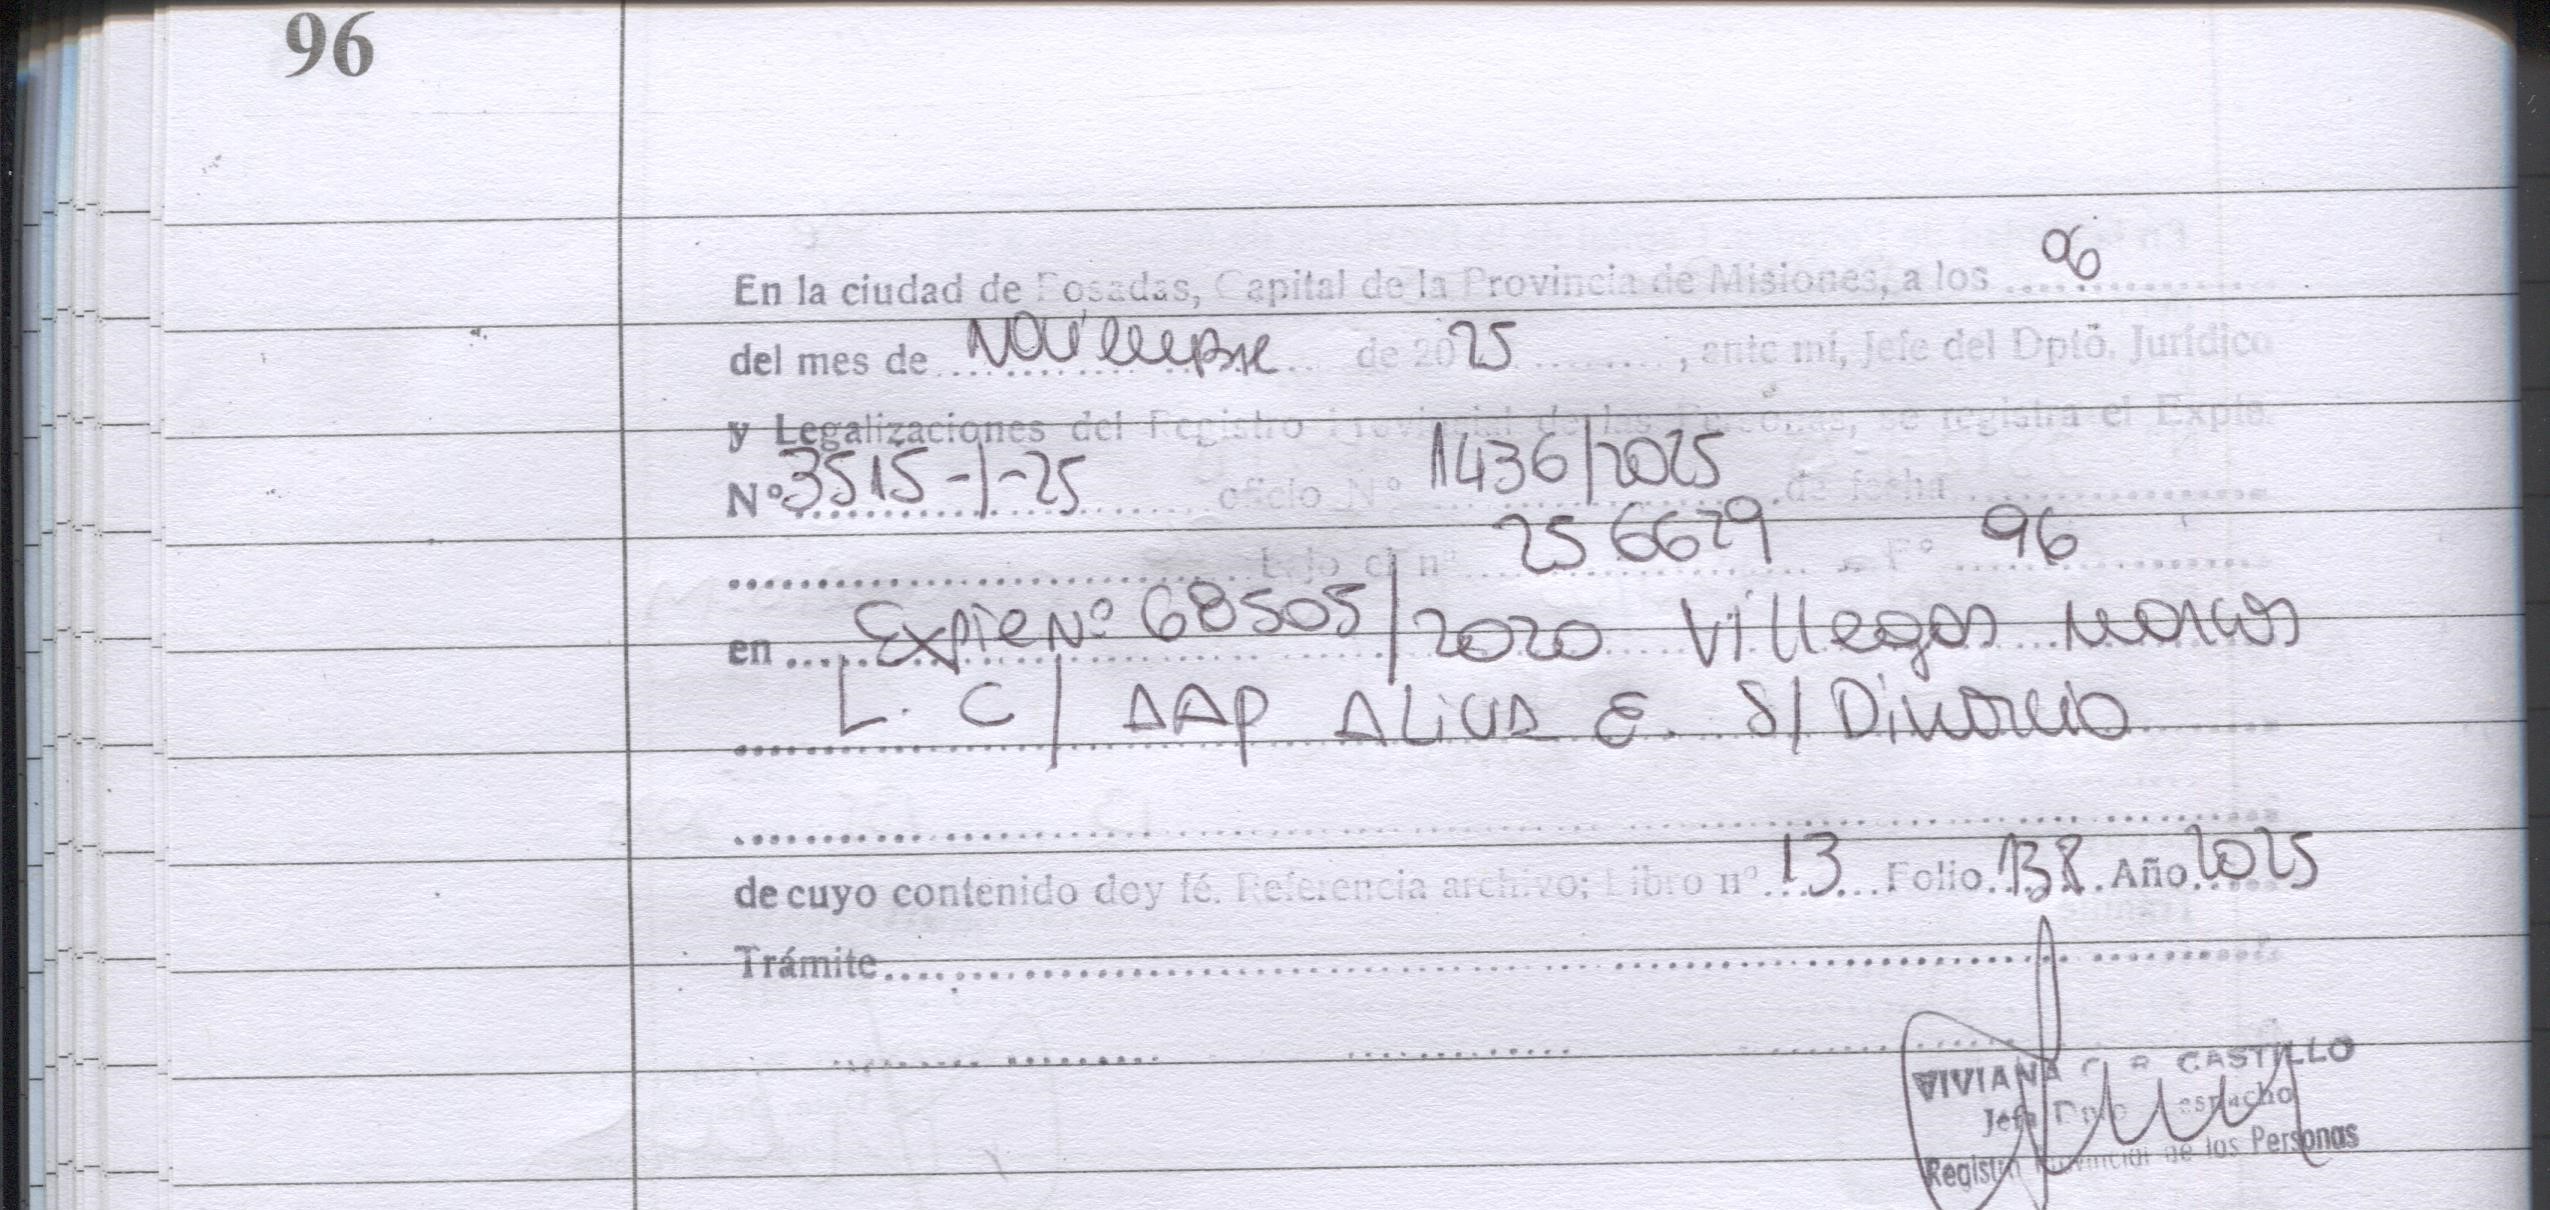 96
En la ciudad de Posadas, Capital de la Provincia de Misiones, a los 06
del mes de Noviembre de 2025, ante mí, Jefe del Dpto. Jurídico
y Legalizaciones del Registro Provincial de las Personas, se registra el Expte.
Nº 3515-/-25 oficio Nº 1436/2025 de fecha
bajo el nº 256679 a Fº 96
en Expte Nº 68505/2020 Villegas Marcos
L. C/ AAP ALiCIA E. S/ Divorcio
de cuyo contenido doy fé. Referencia archivo; Libro nº 13 Folio 138 Año 2025
Trámite
VIVIANA CASTILLO
Jefa Dpto Despacho
Registro Provincial de las Personas